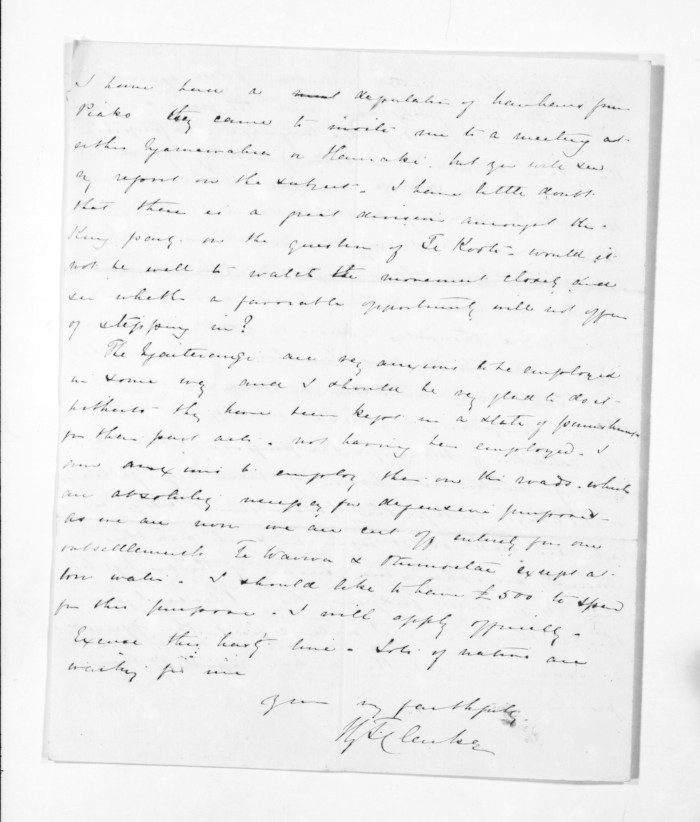 I have have a deputation of hauhaus from
Piako they came to invite me to a meeting at
either or Hauraki. but you will see
my report on the subject. I have little doubt
that there is a great division amongst the
King party on the question of Te Kooti. would it
not be well to watch the movement closely and
see whether a favorable opportunity will not offer
of stepping in?
The Ngaiterangi are very anxious to be employed
in some way and I should be very glad to do it
hitherto they have been kept in a state of punishment
for their past acts. not having been employed. I
am anxious to employ them on the roads. which
are absolutely necessary for defensive purposes
as we are now we are cut off entirely from our
outsettlements Te Wairoa & except at
low water. I should like to have £500 to spend
for this purpose. I will apply officially.
Excuse this hasty line. Lots of natives are
waiting for me
Yours very faithfully
H T Clarke